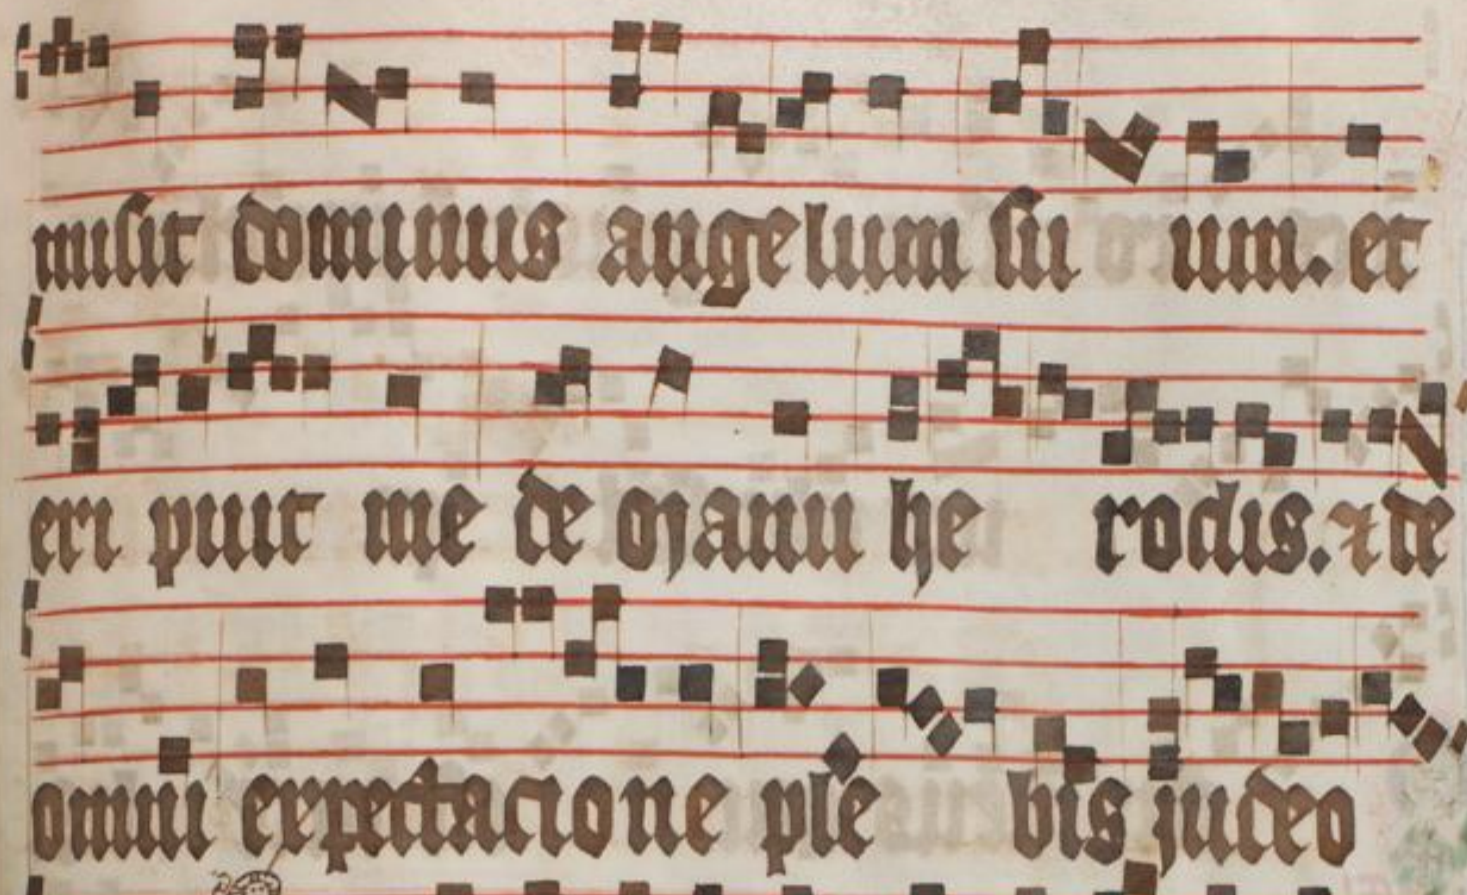 misit dominus angelum su um. et
eri puit me de manu he rodis. ⁊ de
omni expectacione ple bis judeo